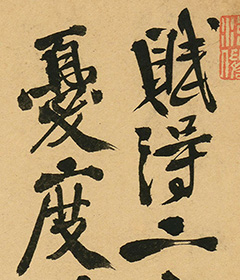 賦得二
憂度